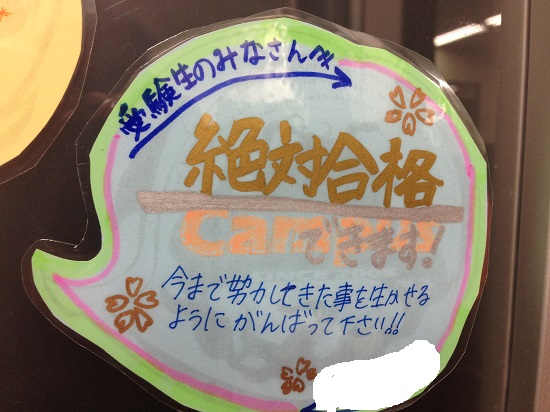 受験生のみなさんへ
絶対合格
Campus
できます!
今まで努力してきた事を生かせる
ように がんばって下さい!!